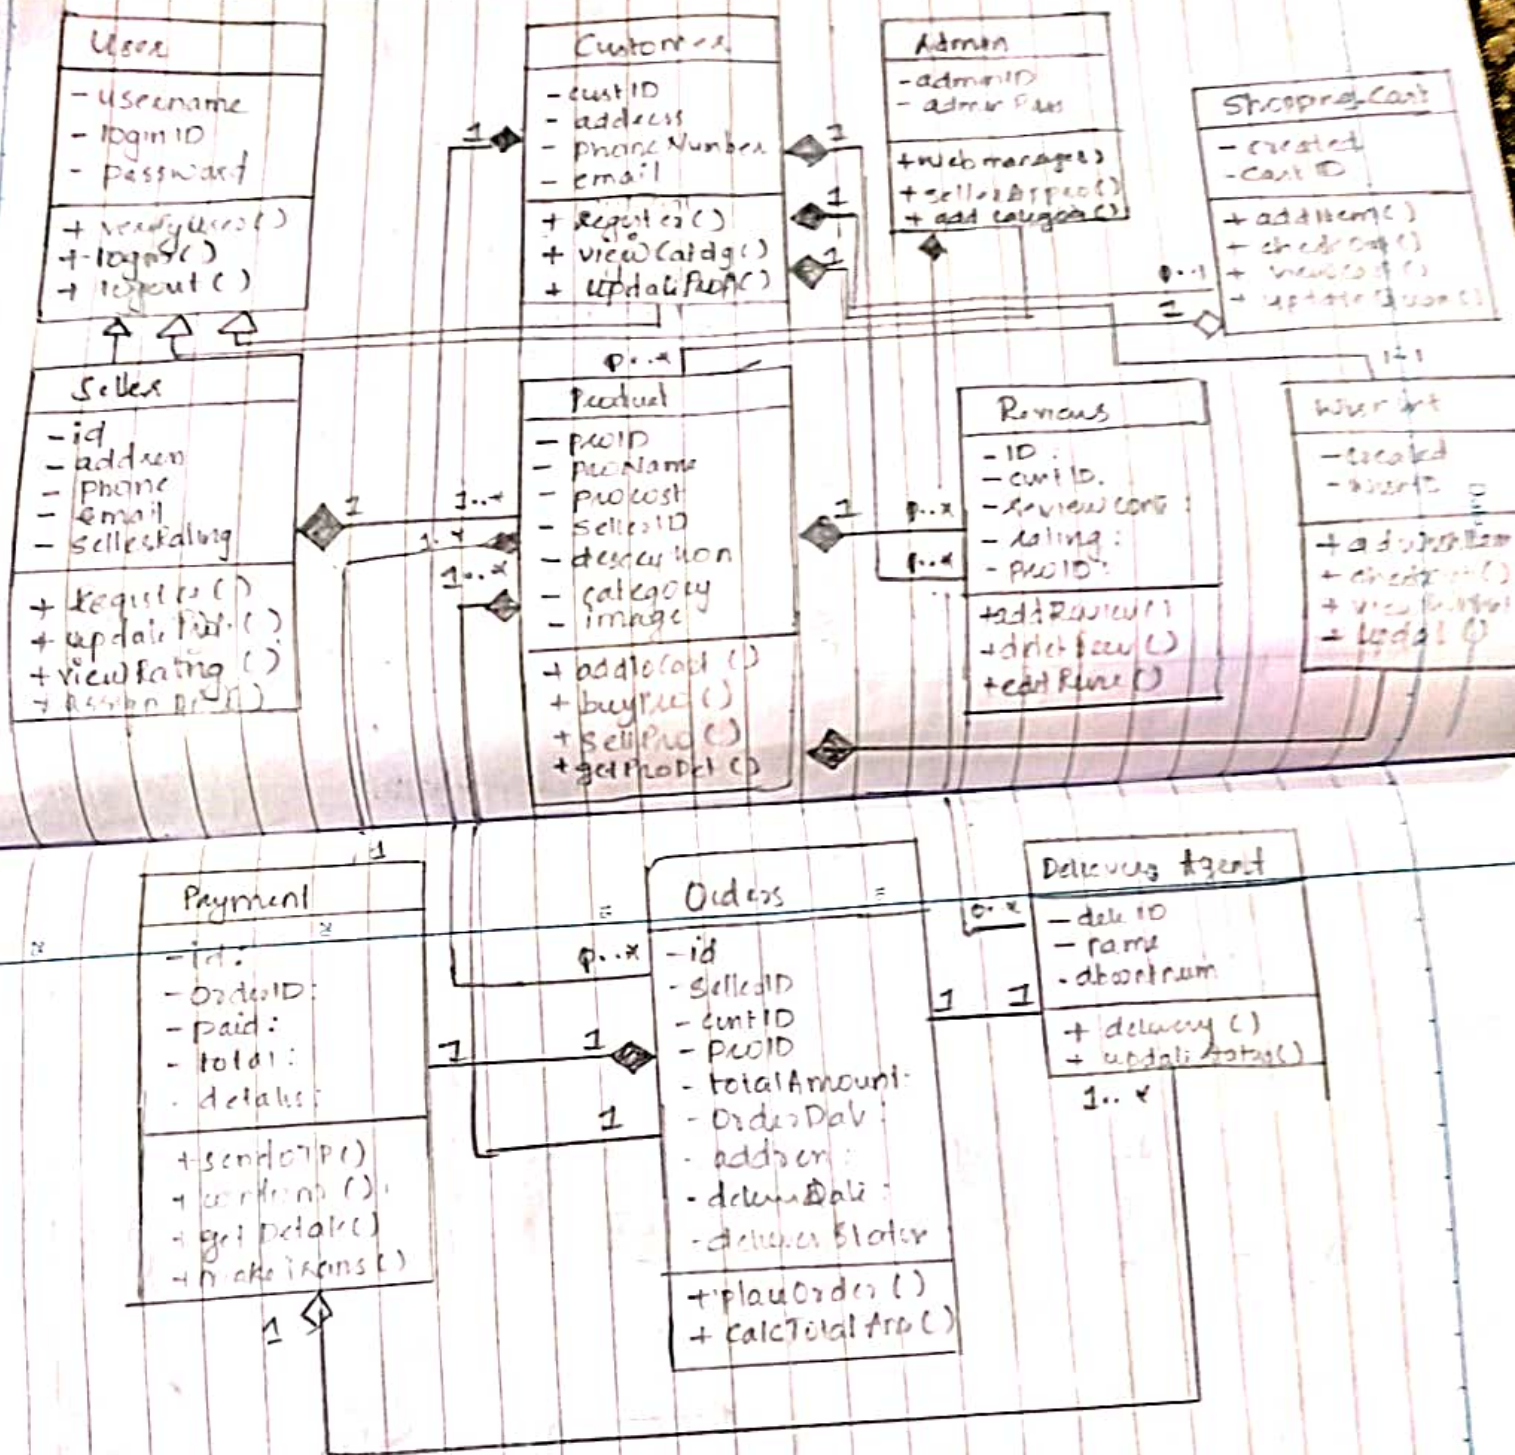 User
- username
- loginID
- password
+ verifyUser()
+ login()
+ logout()
Customer
- custID
- address
- phoneNumber
- email
+ Register()
+ viewCatalg()
+ updateProf()
Admin
- adminID
- adminPass
+ webmanage()
+ sellerAppro()
+ add categor()
Shopping Cart
- created
- cartID
+ addItem()
+ checkOut()
+ viewCart()
1
1
1
1
0..1
1
0..*
1-1
Seller
- id
- address
- phone
- email
- sellerRating
+ Register()
+ updateProf()
+ viewRating()
1
1..*
1..*
1..*
Product
- proID
- proName
- procost
- sellerID
- description
- category
- image
+ addtoCart()
+ buyPro()
+ sellPro()
+ getProDet()
1
0..*
0..*
Reviews
- ID:
- custID.
- reviewcont:
- rating:
- proID:
+ addReview()
- created
+ updat()
1
Payment
- id:
- OrderID:
- paid:
- total:
- details:
+ sendOTP()
+ confirm()
+ getDetail()
+ makeTrans()
1
0..*
1
1
1
Orders
- id
- sellerID
- custID
- proID
- totalAmount:
- OrderDate:
- address:
- deliveryDate:
- delivery Status
+ placeOrder()
+ CalcTotalAmo()
0..*
1
1
Delivery Agent
- deleID
- name
+ delivery()
+ update status()
1..*